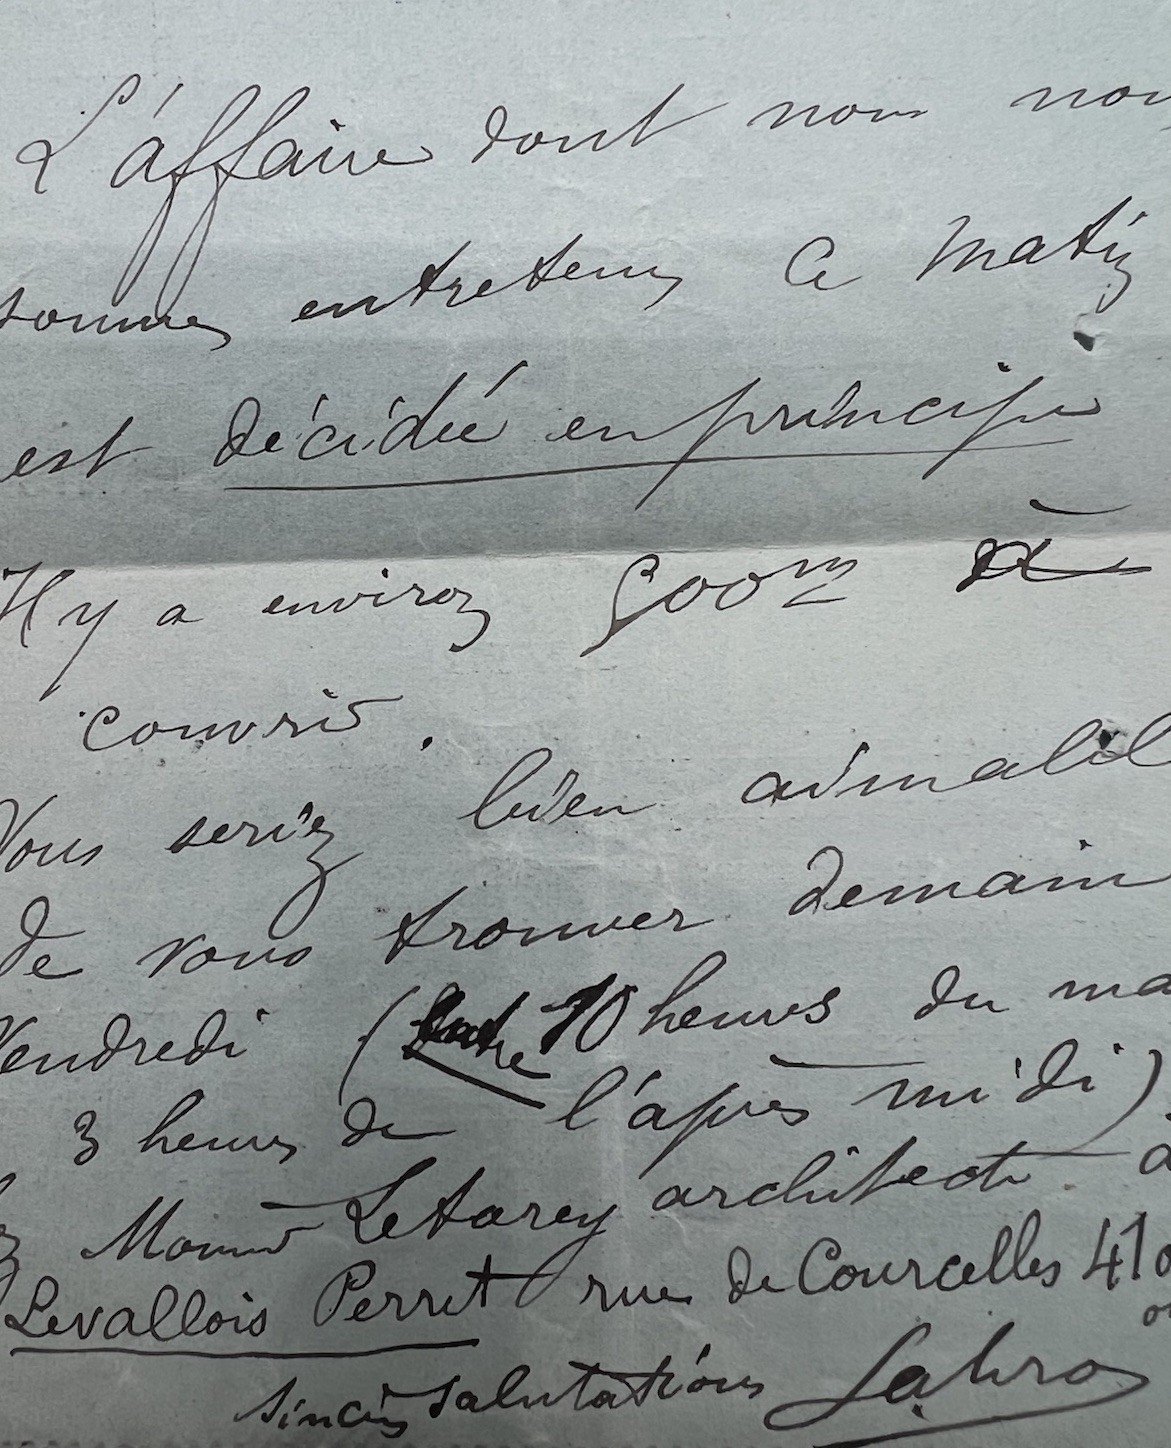 L'affaire dont nous nou
sommes entretenus ce matin
est décidée en principe
Il y a environ 900m à
couvrir.
Vous seriez bien aimabl
de vous trouver demain
Vendredi (entre 10 heures du ma
3 heures de l'après midi)
Monsieur Letorey architecte à
Levallois Perret rue de Courcelles 41
ou
Sincères salutations